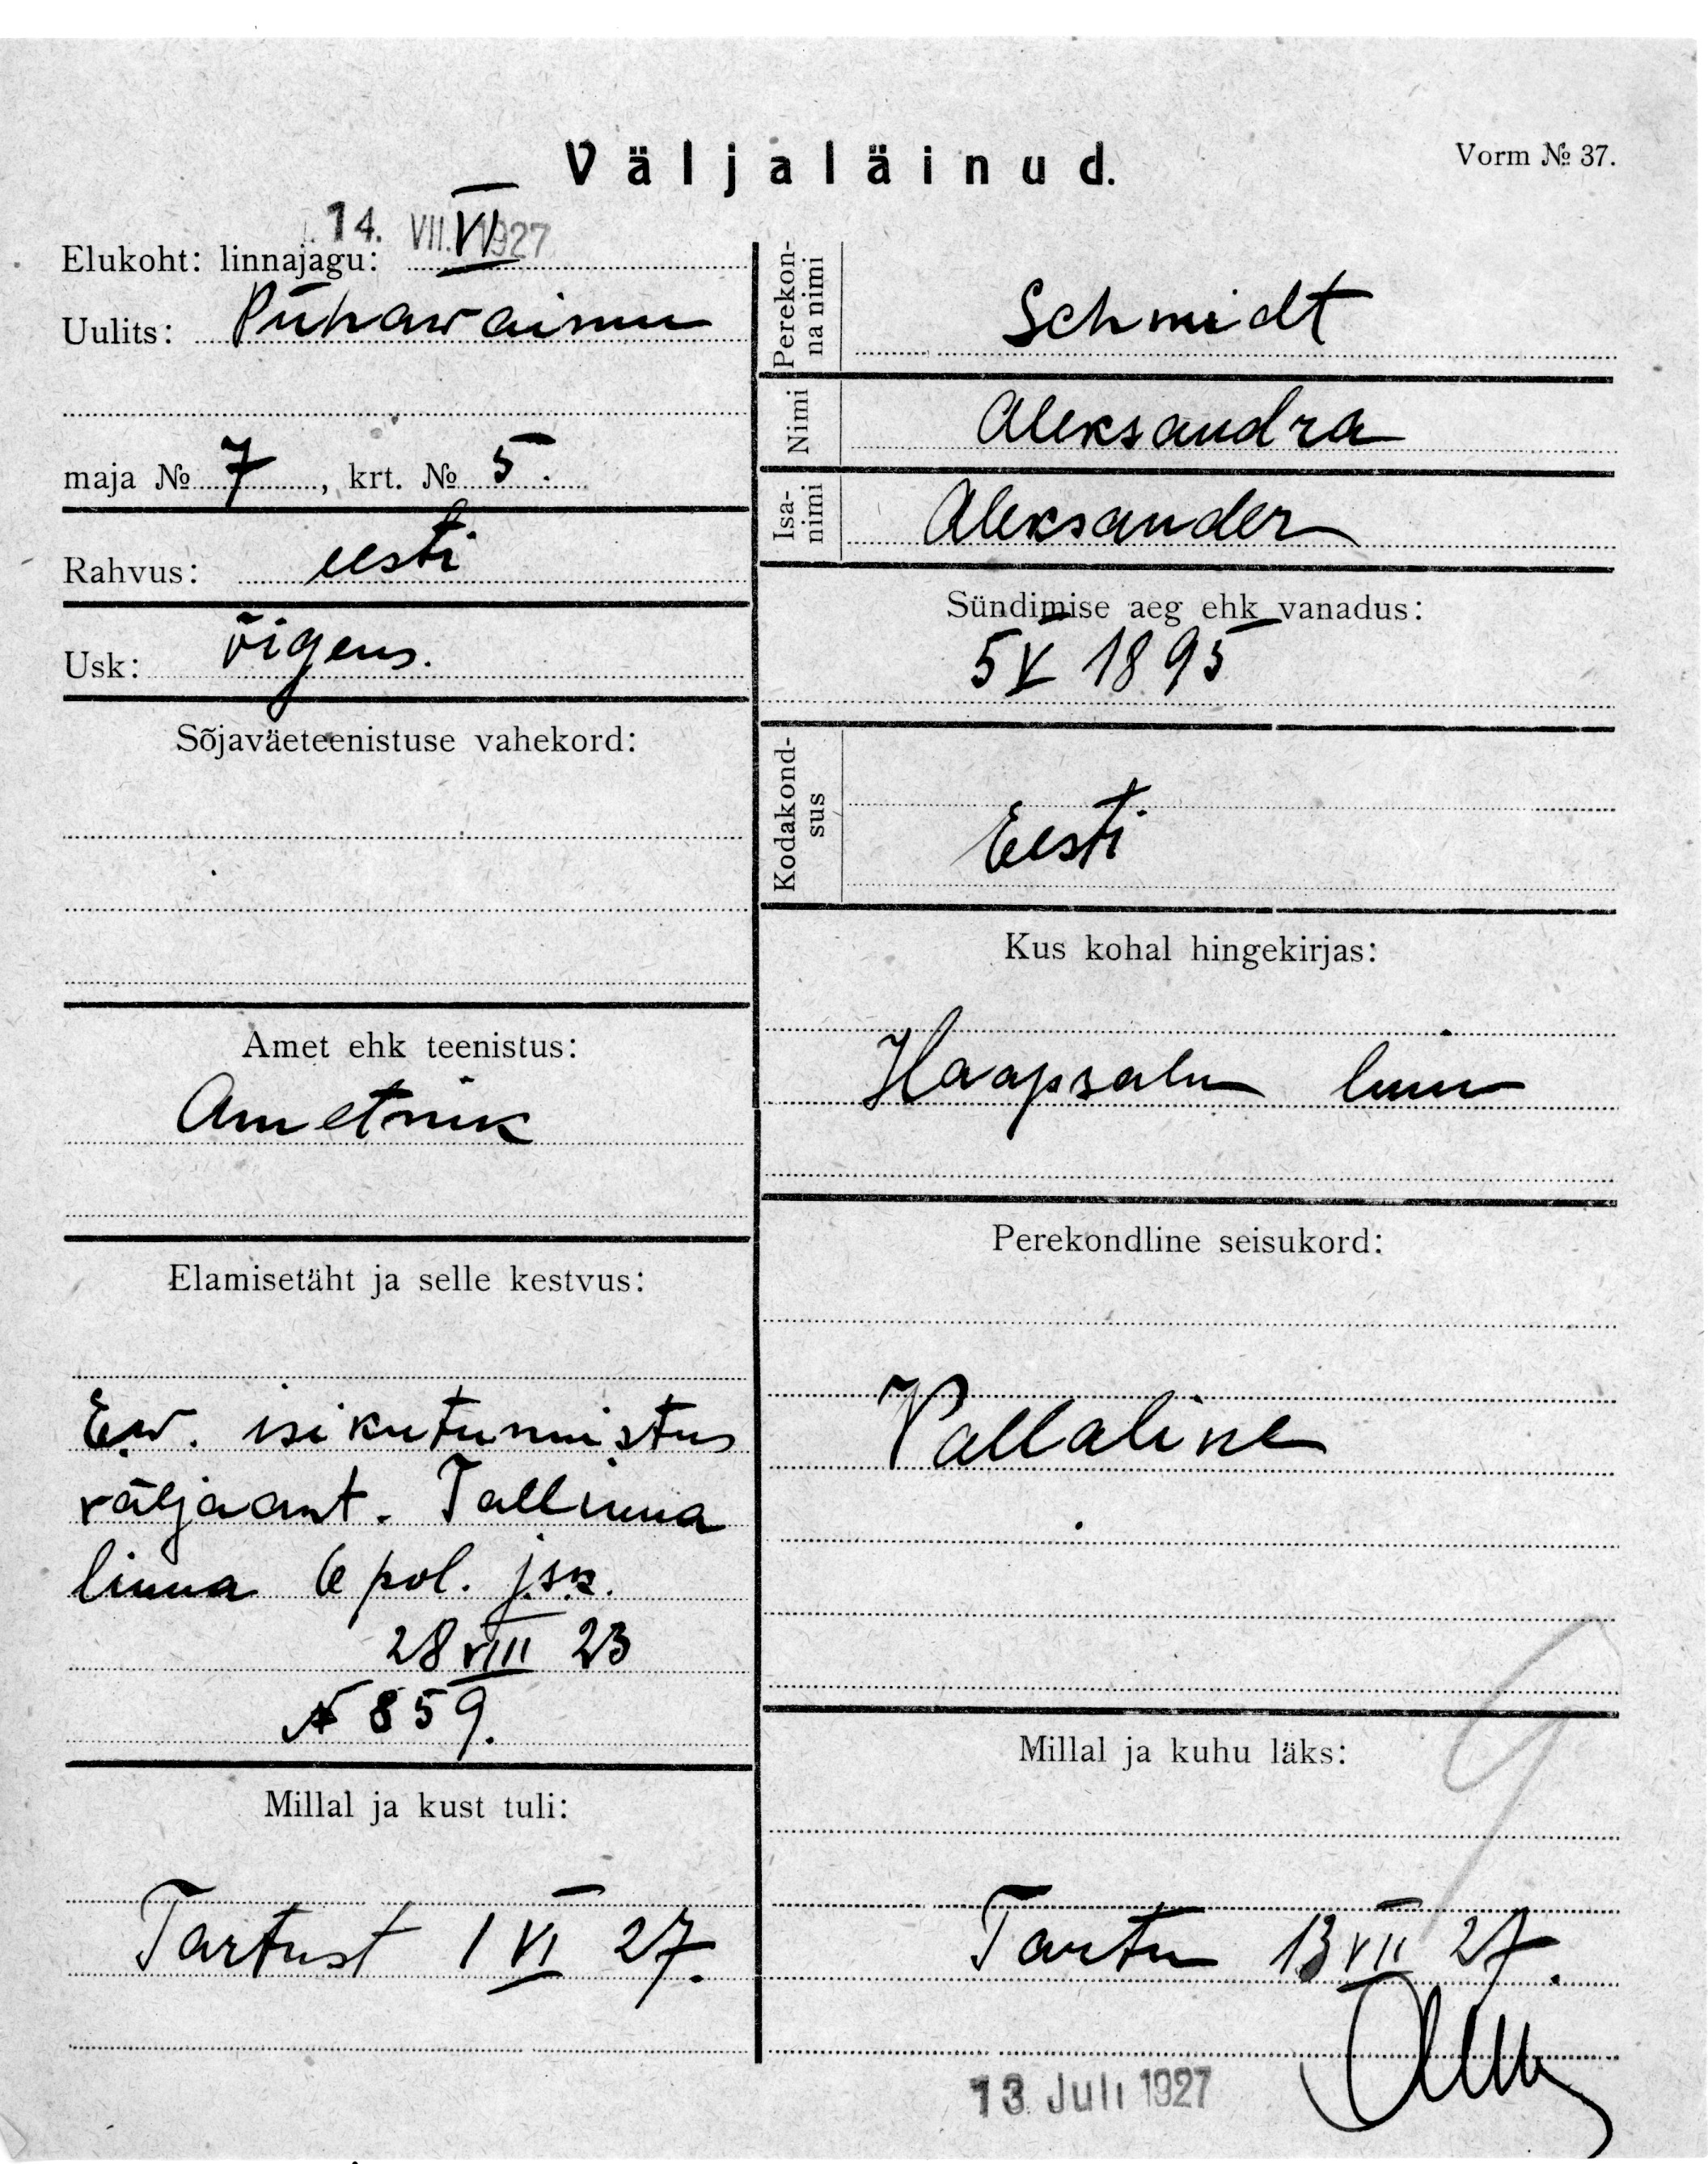 Väljaläinud.
Vorm № 37.
14. VII. 1927
Elukoht: linnajagu: VI
Uulits: Pühawaimu
maja № 7, krt. № 5.
Rahvus: eesti
Usk: õigeus.
Sõjaväeteenistuse vahekord:
Amet ehk teenistus:
Ametnik
Elamisetäht ja selle kestvus:
E.w. isikutunnistus
väljaant. Tallinna
linna 6 pol. jsk.
28 VIII 23
№ 859.
Millal ja kust tuli:
Tartust 1 VI 27.
Perekon-
na nimi
Schmidt
Nimi
Aleksandra
Isa-
nimi
Aleksander
Sündimise aeg ehk vanadus:
5 V 1895
Kodakond-
sus
Eesti
Kus kohal hingekirjas:
Haapsalu linn
Perekondline seisukord:
Vallaline
Millal ja kuhu läks:
9
Tartu 13 VII 27.
13 Juli 1927